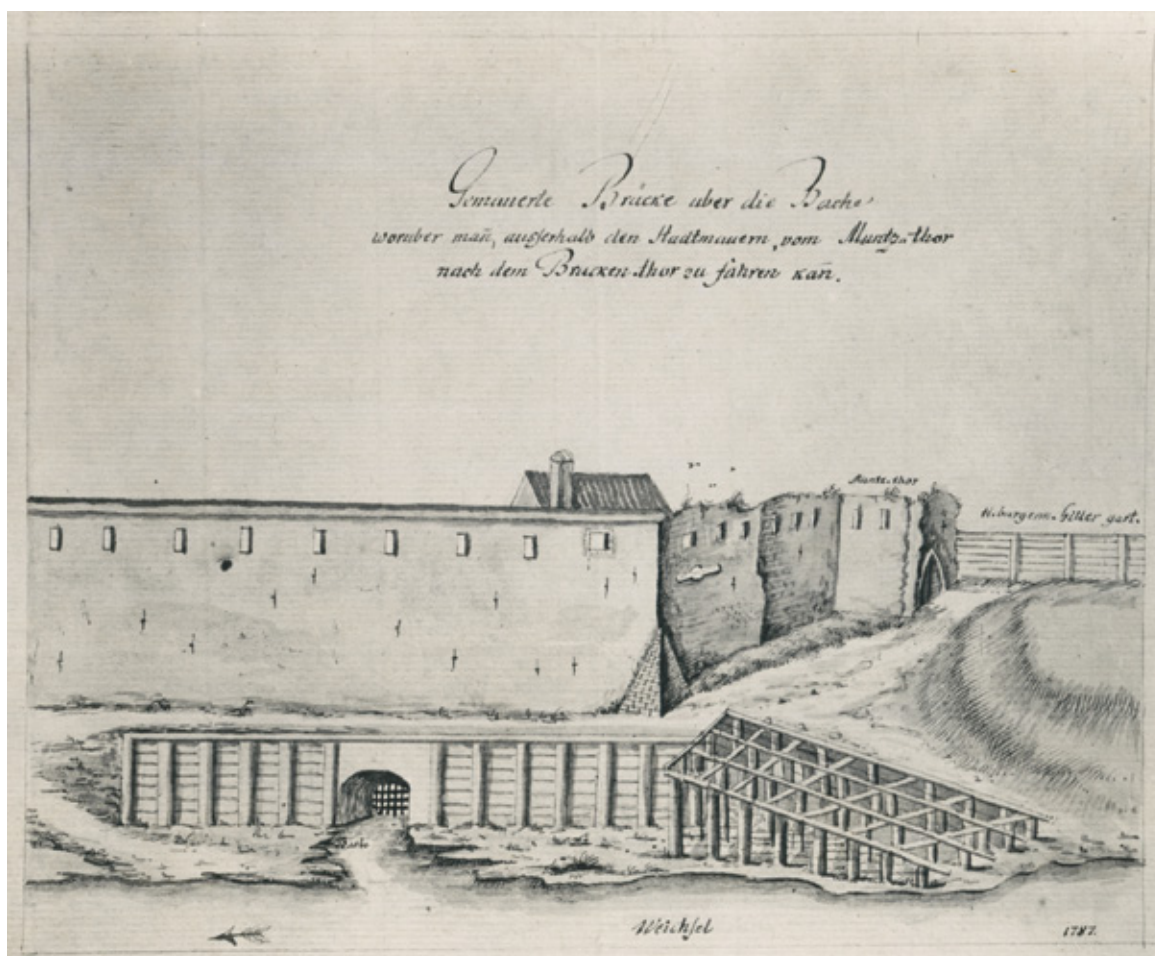 Gemauerte Brücke uber die Bache
worüber mañ, ausserhalb den Stadtmauern, vom Muntz-thor
nach dem Brucken-thor zu fahren kañ.
Muntz-thor
gart.
Bache
Weichsel
1787